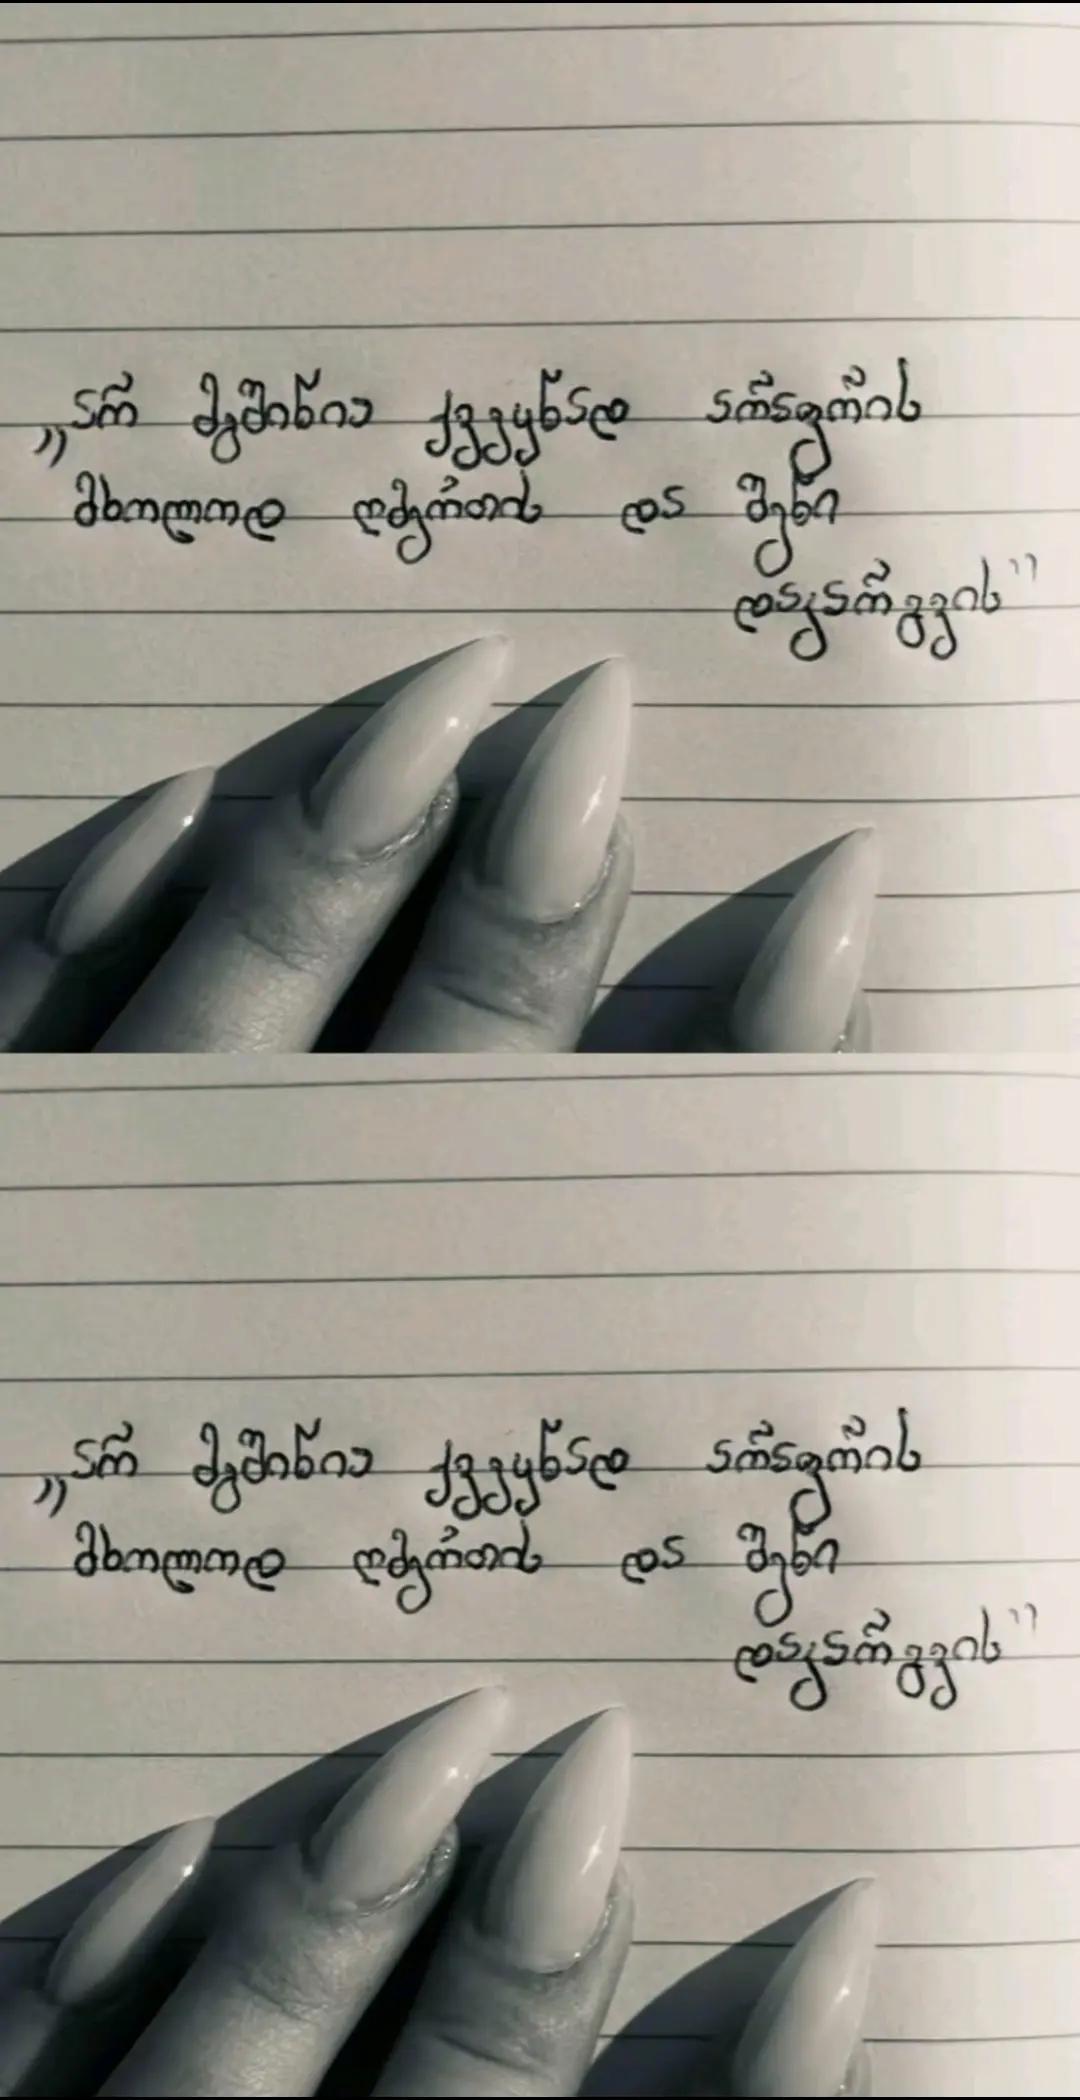 „არ მეშინია ქვეყნად არაფრის
მხოლოდ ღმერთის და შენი
დაკარგვის"
„არ მეშინია ქვეყნად არაფრის
მხოლოდ ღმერთის და შენი
დაკარგვის"